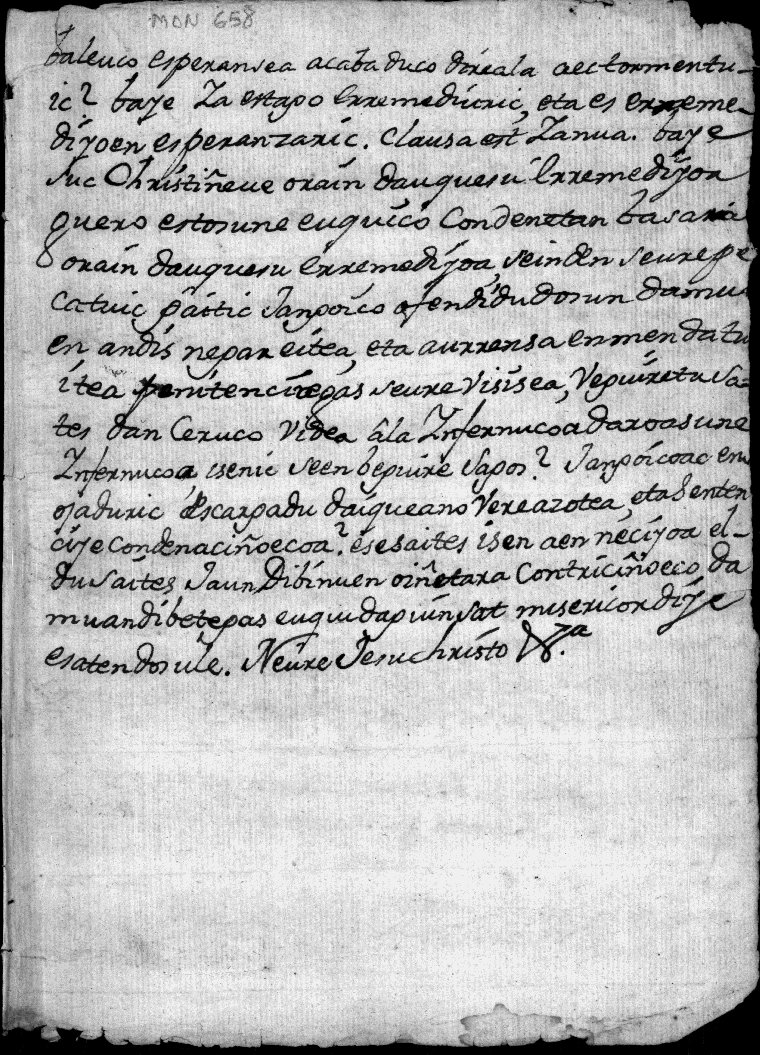 MON 658
baleuco esperansea acabaduco direala aec tormentu-
ic? baye Za estago Erremediuric, eta es erreme-
diyoen esperanzaric. Clausa est Zanua. baye
suc Christiñeue orain dauquesu Erremediyoa
guero estosune euquico Condenatan basara
orain dauquesu erremediyoa, seinden seure pe
catuic gaitic Janpoico ofendidu dosun damu
en andis negar eitea, eta aurrensa enmendatu
itea penitenciregas seure visisea, Vepuiretu sa-
tes dan Ceruco Videa âla Infernucoa daroasuna
Infernucoa isenic seen bepuire sagos? Janpoicoac en
ojaduric escarpadu daigueano Vere azotea, eta senten
ciye condenaciñoecoa? eses aites isen aen neciyoa el-
du saites Jaun Dibinuen oiñetara Contriciñoeco da
mu andi bategas eugui dagiun sat misericordiye
esaten dosule. Neure Jesuchristo &.ª